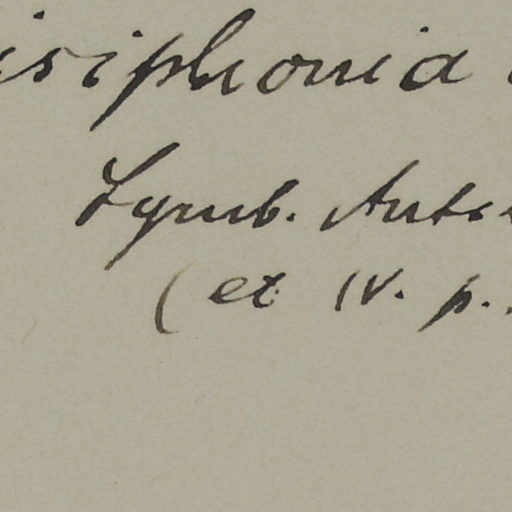 isiphonia
Symb. Anti
(et IV. p.